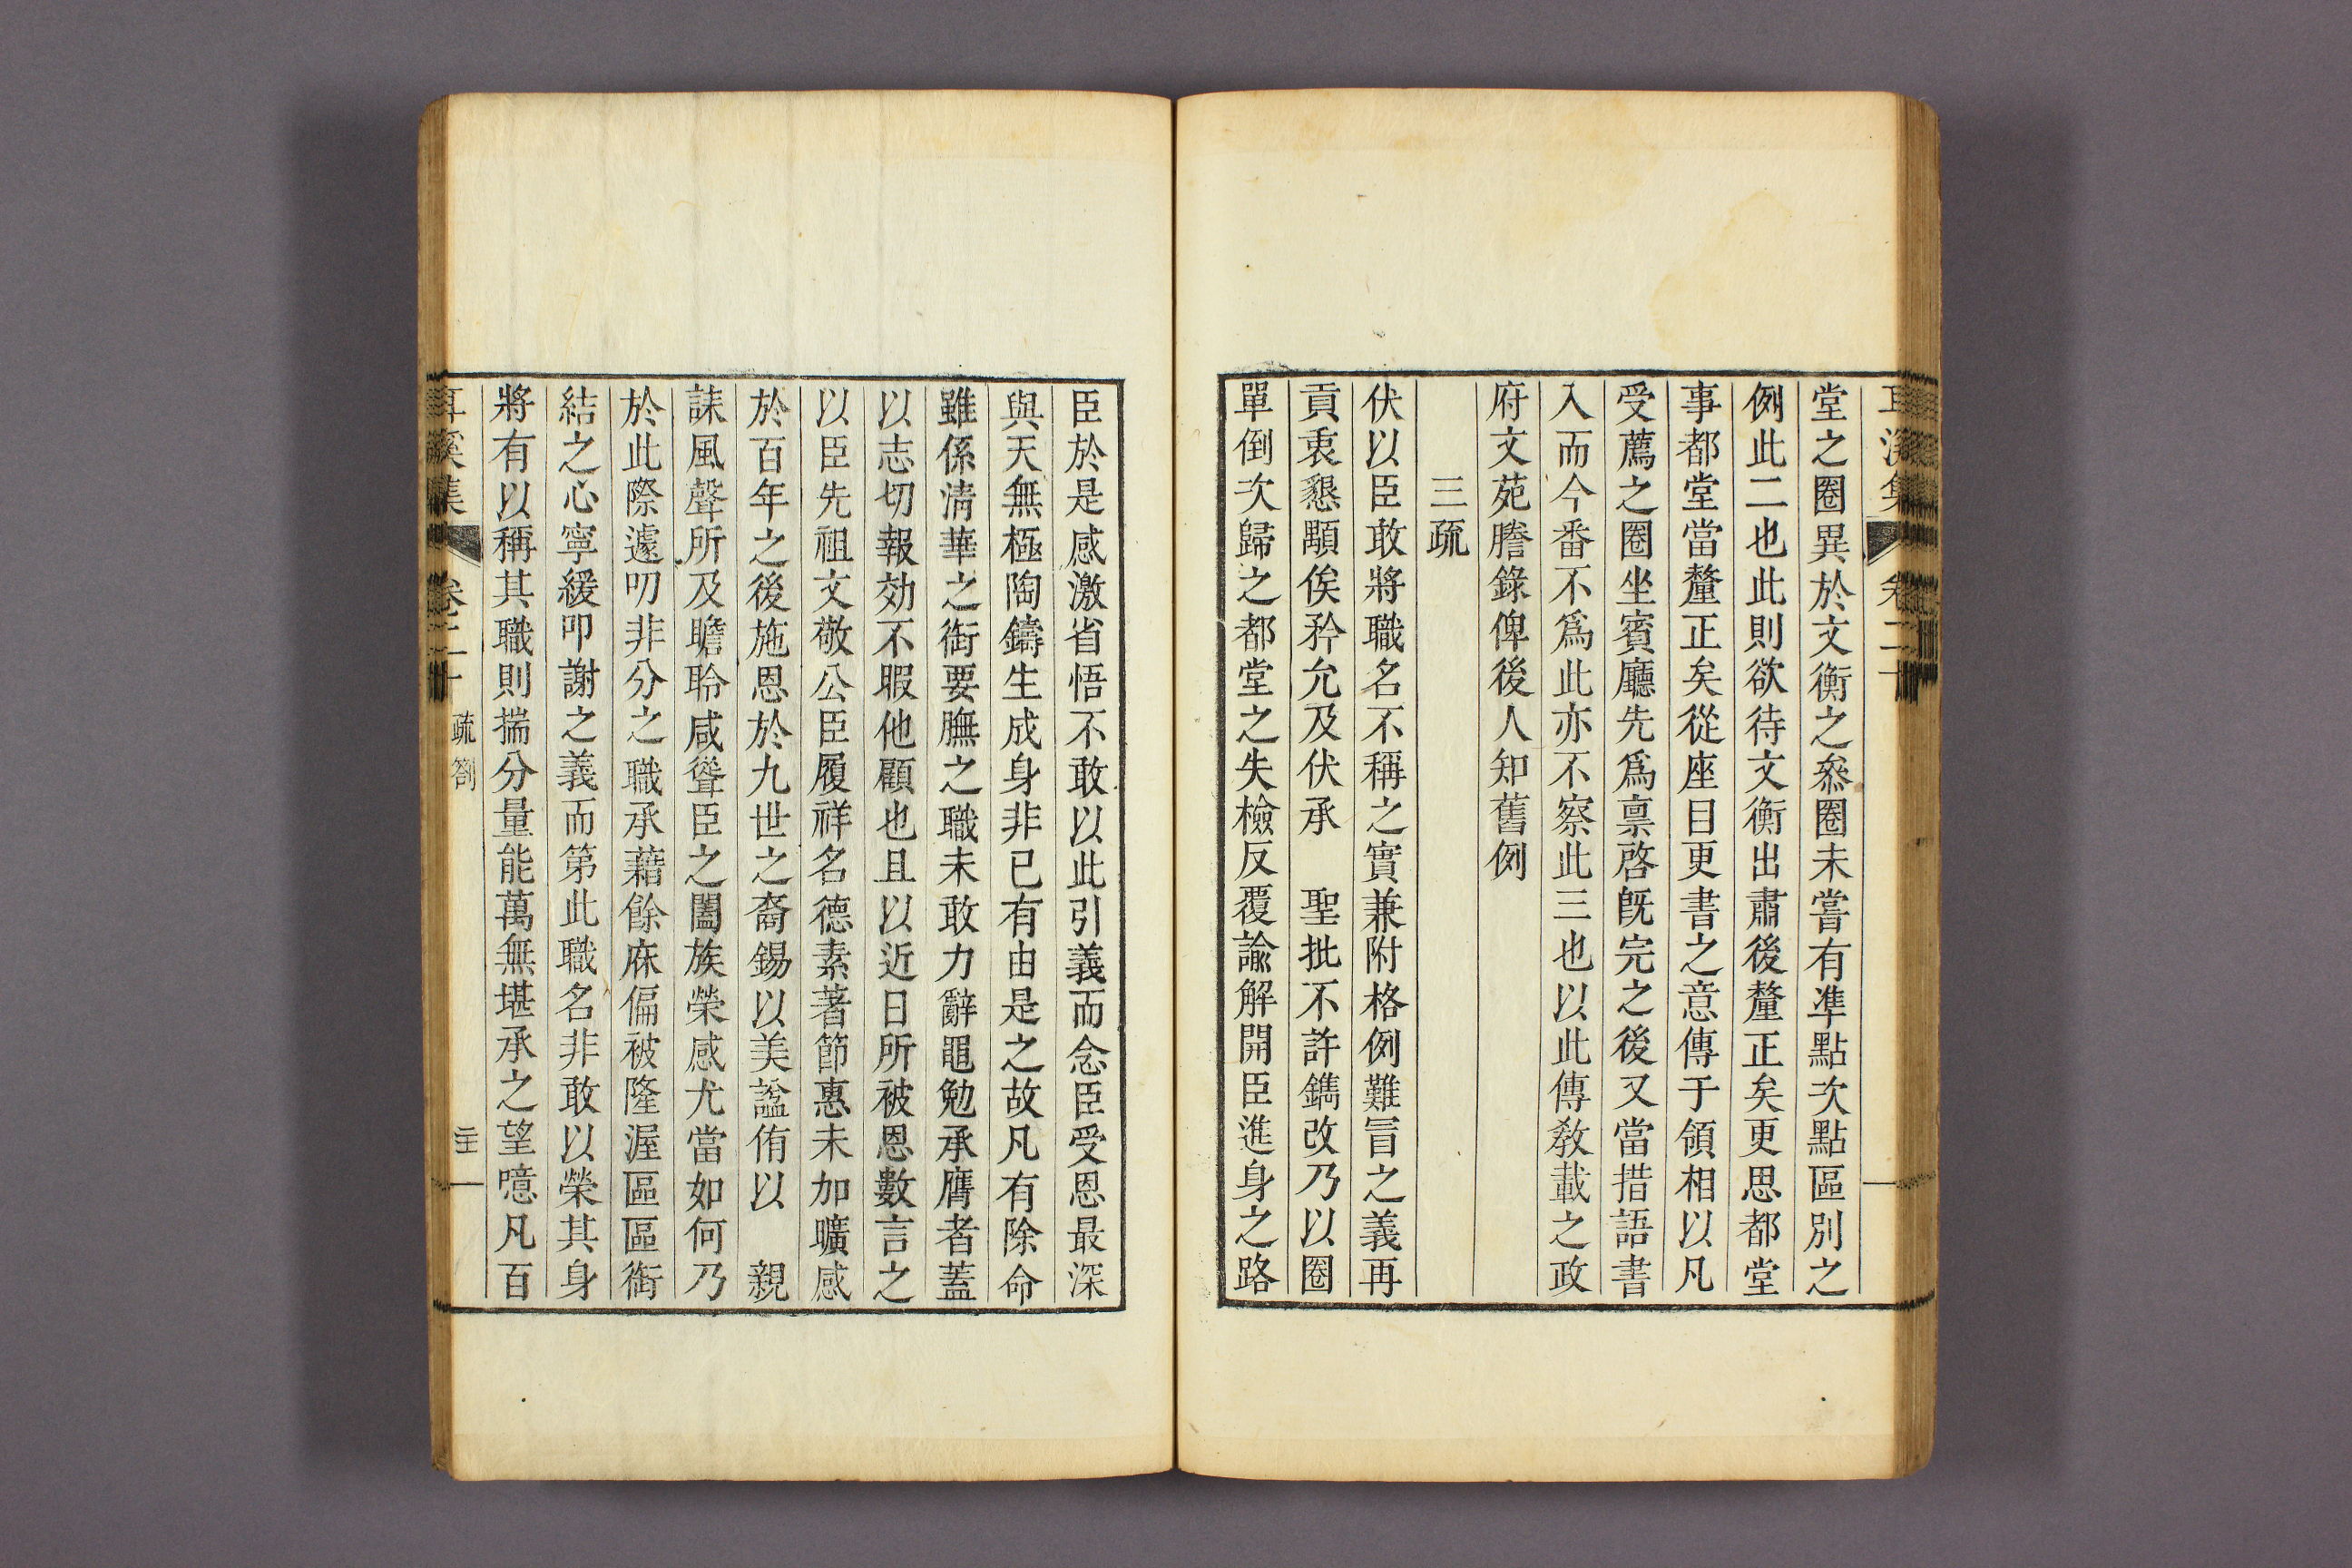 耳溪集 卷二十
堂之圈異於文衡之叅圈未嘗有凖點次點區別之
例此二也此則欲待文衡出肅後釐正矣更思都堂
事都堂當釐正矣從座目更書之意傳于領相以凡
受薦之圈坐賓廳先爲禀啓旣完之後又當措語書
入而今番不爲此亦不察此三也以此傳敎載之政
府文苑謄錄俾後人知舊例
三疏
伏以臣敢將職名不稱之實兼附格例難冒之義再
貢衷懇顒俟矜允及伏承 聖批不許鐫改乃以圈
單倒次歸之都堂之失檢反覆諭解開臣進身之路
臣於是感激省悟不敢以此引義而念臣受恩最深
與天無極陶鑄生成身非已有由是之故凡有除命
雖係淸華之銜要膴之職未敢力辭黽勉承膺者蓋
以志切報効不暇他顧也且以近日所被恩數言之
以臣先祖文敬公臣履祥名德素著節惠未加曠感
於百年之後施恩於九世之裔錫以美諡侑以 親
誄風聲所及瞻聆咸聳臣之闔族榮感尤當如何乃
於此際遽叨非分之職承藉餘庥偏被隆渥區區銜
結之心寧緩叩謝之義而第此職名非敢以榮其身
將有以稱其職則揣分量能萬無堪承之望噫凡百
耳溪集 卷二十 疏箚